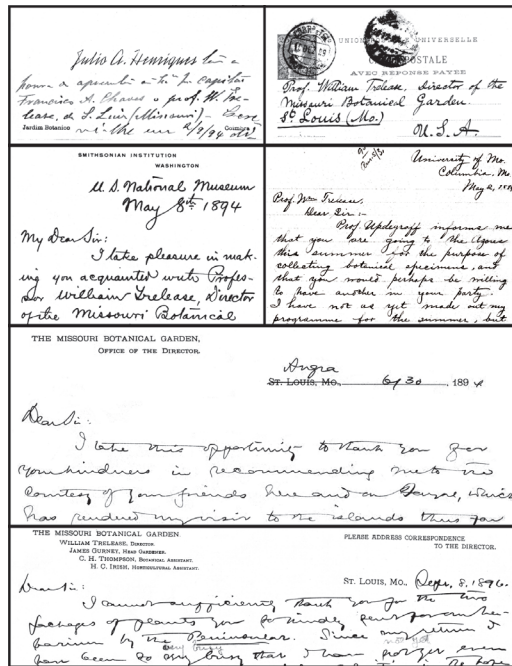 Julio A. Henriques tem a
honra de apresentar ao Sr. capitão
Francisco A. Chaves o prof. W. Tre-
lease, de St. Louis (Missouri)
Jardim Botanico
Coimbra
UNION POSTALE UNIVERSELLE
CARTE POSTALE
AVEC REPONSE PAYÉE
Prof. William Trelease, Director of the
Missouri Botanical Garden.
St Louis (Mo.)
U. S. A.
SMITHSONIAN INSTITUTION
WASHINGTON
U. S. National Museum
May 8th 1894
My Dear Sir:
I take pleasure in mak-
ing you acquainted with Profes-
sor William Trelease, Director
of the Missouri Botanical
University of Mo.
Columbia, Mo.
May 2, 189
Prof. Wm Trelease,
Dear Sir:-
Prof. Updegraff informs me
that you are going to the Azores
this summer for the purpose of
collecting botanical specimens, and
that you would perhaps be willing
to have another in your party.
I have not as yet made out my
programme for the summer, but
THE MISSOURI BOTANICAL GARDEN,
OFFICE OF THE DIRECTOR.
Angra
ST. LOUIS, MO., 6/30 1894
Dear Sir:
I take this opportunity to thank you for
your kindness in recommending me to the
courtesy of your friends here and on Fayal, which
has rendered my visit to the islands thus far
THE MISSOURI BOTANICAL GARDEN
WILLIAM TRELEASE, DIRECTOR.
JAMES GURNEY, HEAD GARDENER.
C. H. THOMPSON, BOTANICAL ASSISTANT.
H. C. IRISH, HORTICULTURAL ASSISTANT.
PLEASE ADDRESS CORRESPONDENCE
TO THE DIRECTOR.
ST. LOUIS, MO., Sept. 8, 1896.
Dear Sir:
I cannot sufficiently thank you for the two
packages of plants you so kindly sent from her-
barium by the Peninsular. Since my return I
have been so very busy that I have not yet even